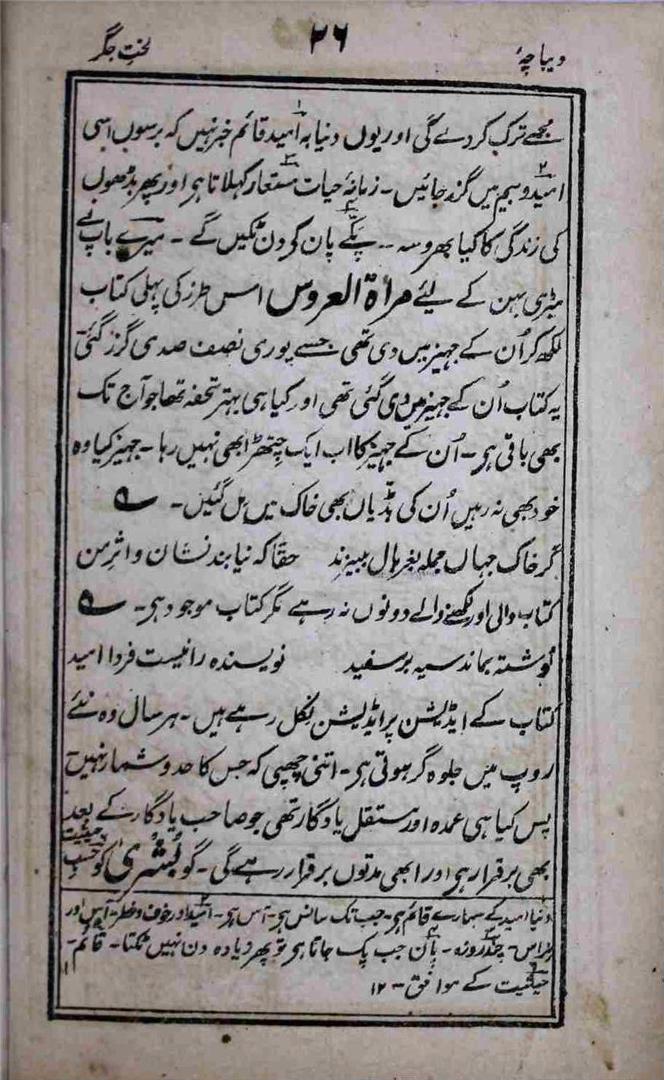 دیباچہ ۲۶ لختِ جگر
مجھے ترک کر دے گی اور یوں دنیا بہ امید قائم خبر نہیں کہ برسوں اسی
امید و بیم میں گزر جائیں۔ زمانۂ حیات مستعار کہلاتا ہر اور پھر بڈھوں
کی زندگی کا کیا بھروسہ ۔۔ پکے پان کَو دن ٹکیں گے۔ میرے باپ نے
بڑی بہن کے لیئے مرأۃ العروس اس طرز کی پہلی کتاب
لکھ کر اُن کے جہیز میں دی تھی جسے پوری نصف صدی گزر گئی
یہ کتاب اُن کے جہیز میں دی گئی تھی اور کیا ہی بہتر تحفہ تھا جو آج تک
بھی باقی ہر۔ اُن کے جہیز کا اب ایک چتھڑا بھی نہیں رہا۔ جہیز کیا وہ
خود بھی نہ رہیں اُن کی ہڈیاں بھی خاک میں مل گئیں۔ ؎
گر خاک جہاں جملہ بغربال ببیزند حقا کہ نیابند نشان و اثر من
کتاب والی اور لکھنے والے دونوں نہ رہے مگر کتاب موجود ہر۔ ؎
نوشتہ بماند سیہ بر سفید نویسندہ را نیست فردا امید
کتاب کے ایڈیشن پر ایڈیشن نکل رہے ہیں۔ ہر سال وہ نئے
روپ میں جلوہ گر ہوتی ہر۔ اتنی چھپی کہ جس کا حد و شمار نہیں
پس کیا ہی عمدہ اور مستقل یادگار تھی جو صاحب یادگار کے بعد
بھی برقرار ہر اور ابھی مدتوں برقرار رہے گی۔ گو بُشریٰ کو حسب حیثیت
۱ دنیا امید کے سہارے قائم ہر۔ جب تک سانس ہر۔ آس ہر۔ ۲ امید اور خوف و خطر۔ آس اور
ہراس۔ ۳ چند روزہ۔ ۴ پان جب پک جاتا ہر تو پھر زیادہ دن نہیں ٹکتا۔ قائم۔
حیثیت کے موافق ۱۲